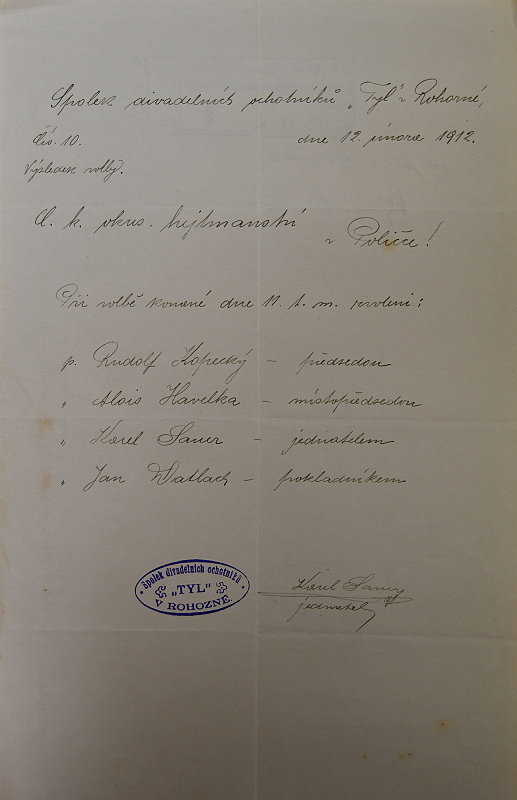 Spolek divadelních ochotníků „Tyl" v Rohozné,
Čís. 10.
dne 12. února 1912.
Výsledek volby.
C. k. okres. hejtmanství
v Poličce!
Při volbě konané dne 11. t. m. zvoleni:
p. Rudolf Kopecký – předsedou
„ Alois Havelka – místopředsedou
„ Karel Sauer – jednatelem
„ Jan Datlach – pokladníkem
Spolek divadelních ochotníků
„TYL"
V ROHOZNÉ.
Karel Sauer
jednatel